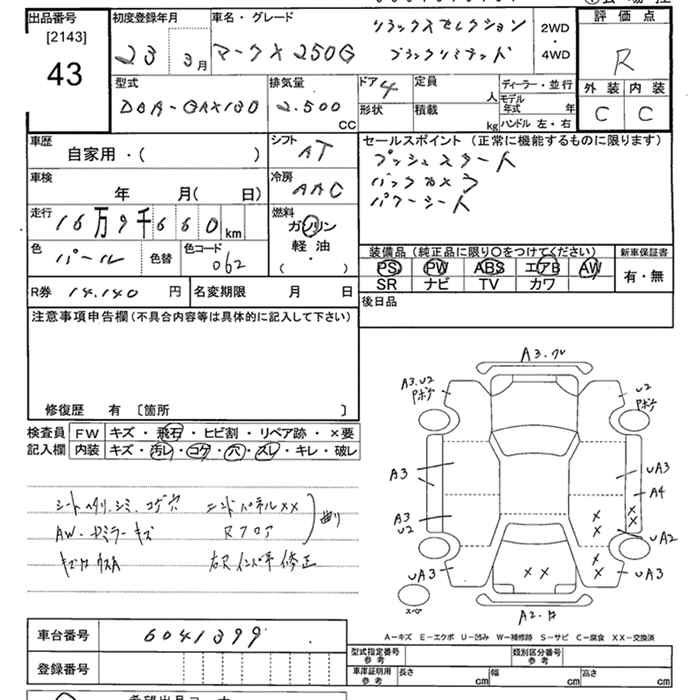 出品番号
[2143]
43
初度登録年月
23 年 3月
車名・グレード
マークX 250G
リラックスセレクション
ブラックリミテッド
2WD
・
4WD
評価点
R
外装 内装
C C
型式
DBA-GRX130
排気量
2.500
CC
ドア 4
形状
定員
人
積載
kg
ディーラー・並行
モデル年式 年
ハンドル 左・右
車歴
自家用・( )
シフト
AT
車検
年 月( 日)
冷房
AAC
走行
16万9千660km
燃料
ガソリン
軽油・
( )
色
パール
色替
色コード
062
R券 14.140 円
名変期限 月 日
セールスポイント(正常に機能するものに限ります)
プッシュスタート
バックカメラ
パワーシート
装備品(純正品に限り〇をつけてください)
PS PW ABS エアB AW
SR ナビ TV カワ
新車保証書
有・無
後日品
注意事項申告欄(不具合内容等は具体的に記入して下さい)
修復歴 有 〔箇所 〕
検査員記入欄
FW キズ・飛石・ヒビ割・リペア跡・×要
内装 キズ・汚レ・コゲ・穴・スレ・キレ・破レ
シートヘタリ.シミ.コゲ穴
AW・ドアミラーキズ
エンドパネルXX
Rフロア
曲り
右Rインパネ 修正
A3.ワレ
A3.U2
Pボケ
U2
Pボケ
A3
UA3
A4
A3
U2
××
××
UA2
UA3
××
××
UA3
スペア
A-キズ E-エクボ U-凹み W-補修跡 S-サビ C-腐食 XX-交換済
車台番号 6041399
登録番号
型式指定番号 参考
類別区分番号 参考
車庫証明用 参考
長さ cm
幅 cm
高さ cm